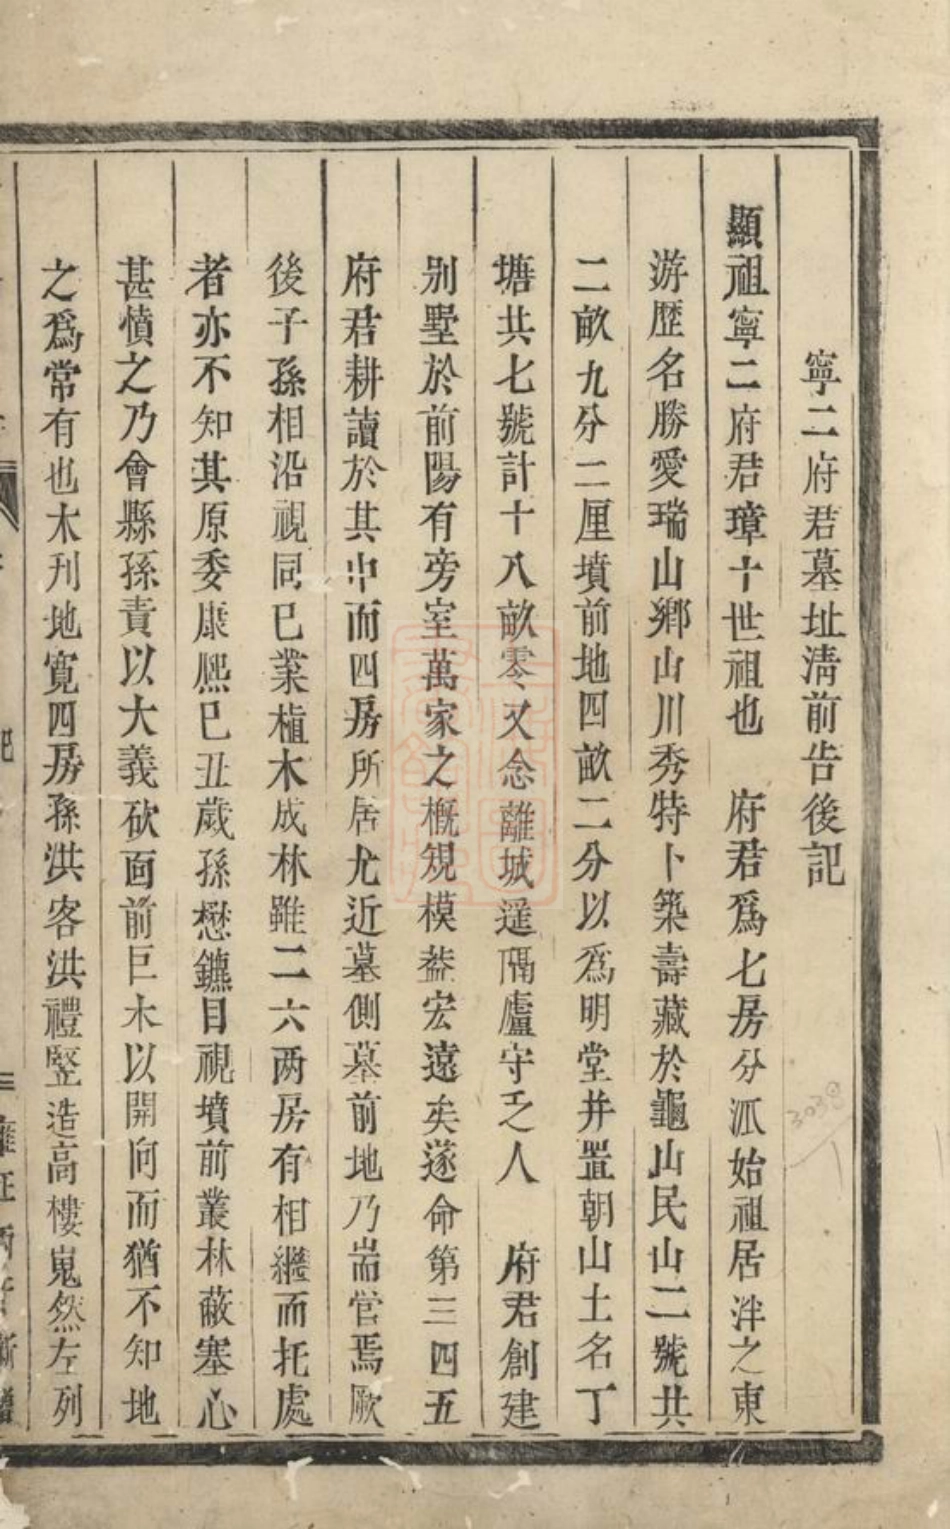 寧二府君墓址淸前告後記
顯祖寧二府君璋十世祖也　府君爲七房分𣲖始祖居泮之東
游歷名勝愛瑞山鄉山川秀特卜築壽藏於龜山民山二號共
二畝九分二厘墳前地四畝二分以爲明堂并置朝山土名丁
塘共七號計十八畝零又念離城遥隔廬守乏人　府君創建
别墅於前陽有旁室萬家之概䂓模葢宏遠矣遂命第三四五
府君耕讀於其中而四房所居尤近墓側墓前地乃耑管焉厥
後子孫相沿視同已業植木成林雖二六两房有相繼而托處
者亦不知其原委康熙已丑歲孫懋鑣目視墳前叢林蔽塞心
甚憤之乃會縣孫責以大義砍面前巨木以開向而猶不知地
之爲常有也木刋地寛四房孫洪客洪禮竪造高樓嵬然左列
記
雍正